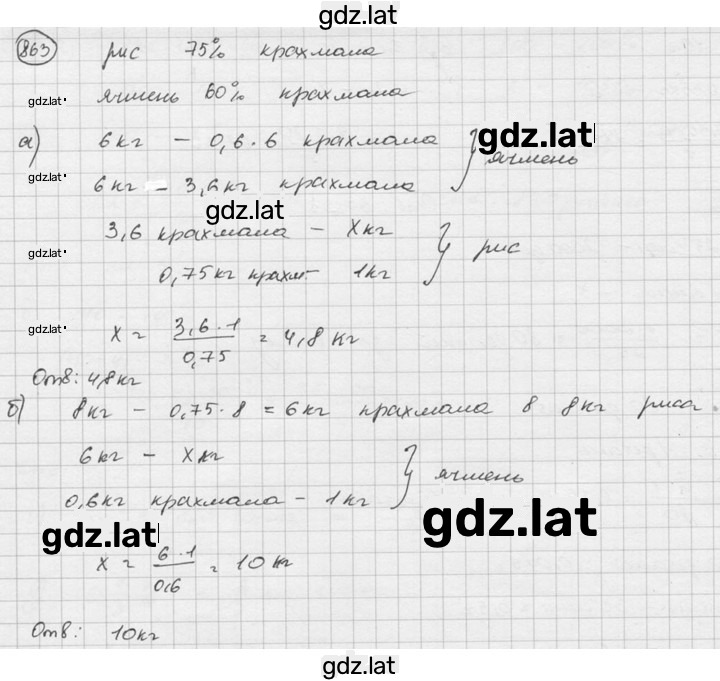 gdz.lat
863 рис 75% крахмала
gdz.lat ячмень 60% крахмала
а) 6кг – 0,6·6 крахмала } ячмень gdz.lat
gdz.lat 6кг – 3,6кг крахмала
gdz.lat
3,6 крахмала – Xкг } рис
gdz.lat 0,75кг крахм– 1кг
gdz.lat X = 3,6·1/0,75 = 4,8 кг
Отв: 4,8кг
б) 8кг – 0,75·8 = 6кг крахмала в 8кг риса.
6кг – Xкг } ячмень
0,6кг крахмала – 1кг
gdz.lat gdz.lat
X = 6·1/0,6 = 10 кг
Отв: 10кг
gdz.lat